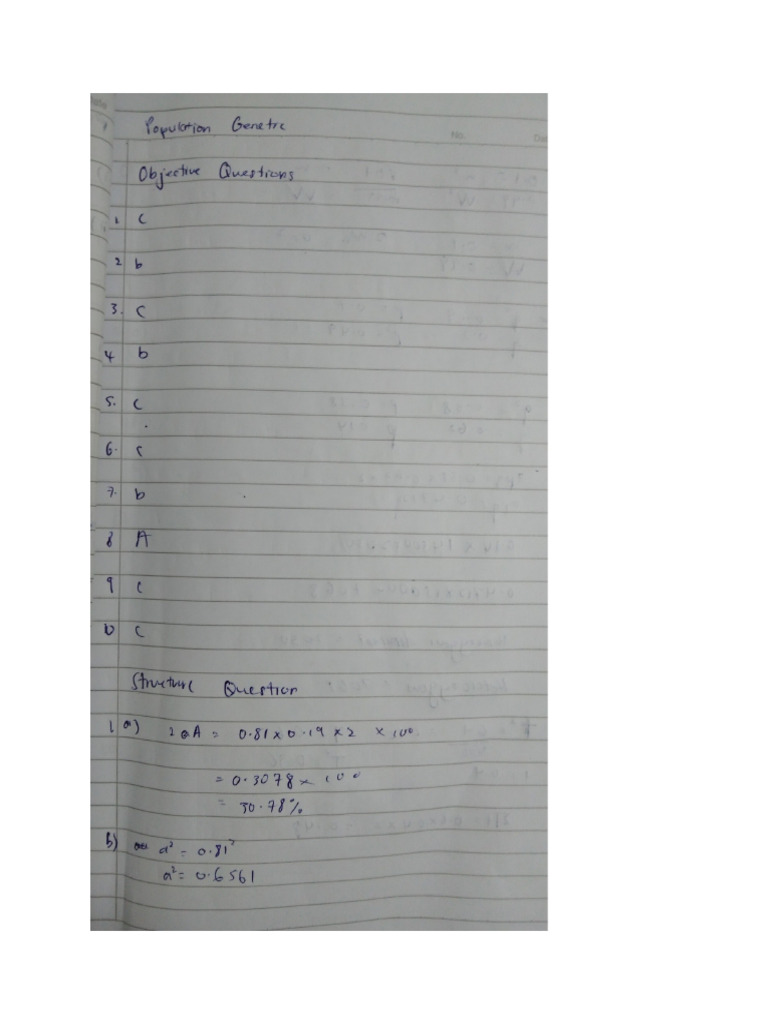 Population Genetic
No.
Objective Questions
1. c
2 b
3. c
4 b
5. c
6. c
7. b
8 A
9 c
10 c
Structure Question
1 a) 2aA = 0.81 x 0.19 x 2 x 100.
= 0.3078 x 100
= 30.78%
b) a² = 0.81²
a² = 0.6561